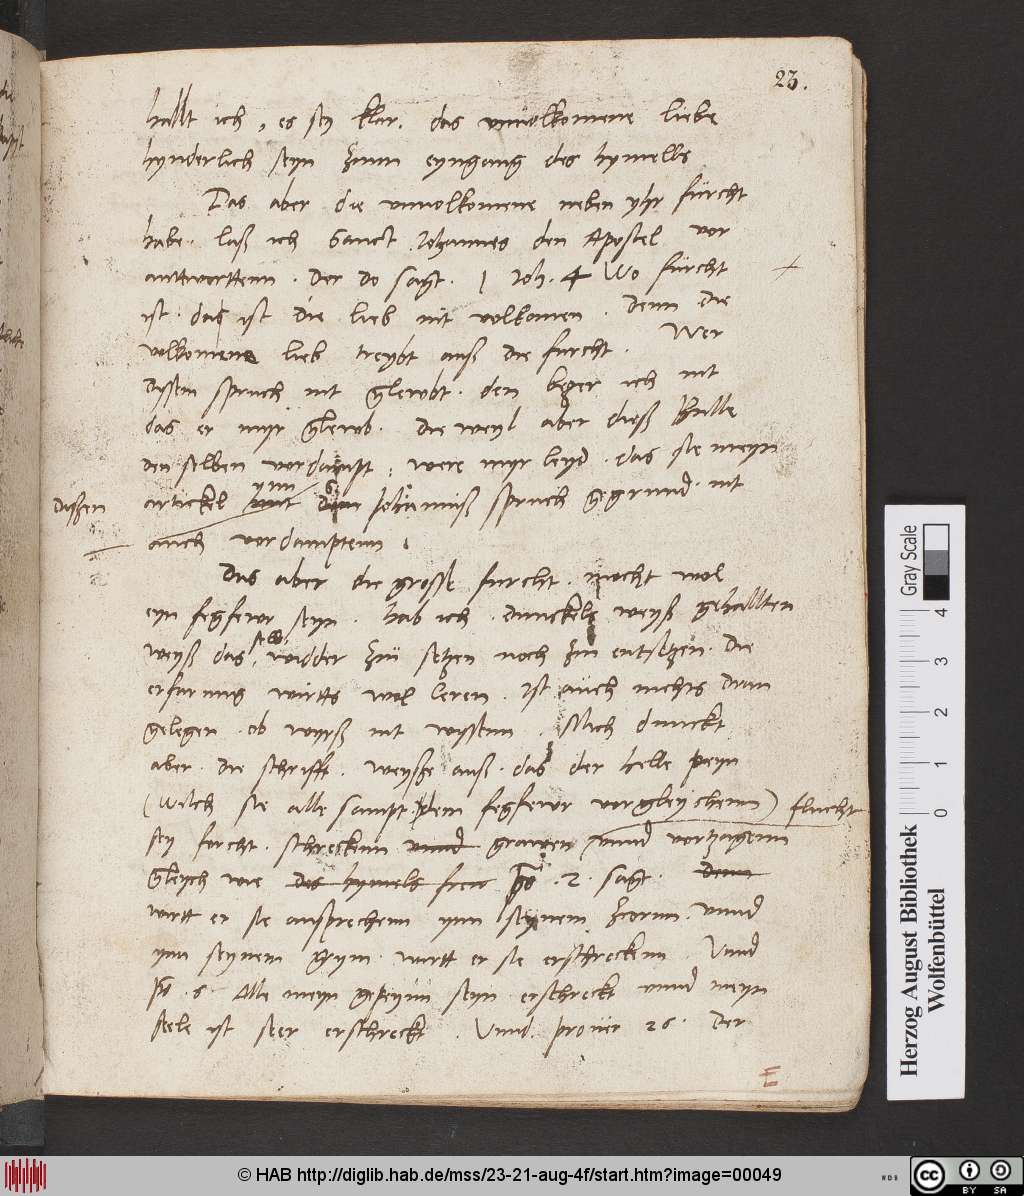 23.
hallt ich, es sey klar. das unuolkomene liebe
hynderlich seyn zum eyngang des hymells
Das aber die unuolkomene neben yhr fürcht
habe. laß ich Sanct Johannes den Apostel vor
anttworttenn. der do sagt. 1 Joh. 4 Wo fürcht
ist. das ist die lieb nit volkomen. Denn die
volkomene lieb treybt auß die furcht. Wer
dyssem spruch nit glewbt. den beger ich nit
das er myr glewb. die weyl aber dieß Bulle
den selben vordampt, were myr leyd. das sie meyn
dissen artickel ynn S. Johanniß spruch gegrund. nit
auch vordamptenn.
Das aber die grosse furcht. mocht wol
eyn fegfewr seyn. hab ich. dunckele weyß gehallten
weyß das selb, widder zü setzen noch zu entsetzen. die
erfarung wirtts wol leren. Ist auch nichts dran
gelegen. ob wyrß nit wyssenn. Mich dunckt
aber. die schrifft. weysße auß. das der helle peyn
(Wilch sie alle sampt dem fegfewr vorgleychenn) flucht
sey forcht. schreckenn grawen unnd vortzagenn
Gleych wie ps. 2. sagt.
wirtt er sie ansprechenn ynn seynem zcornn. unnd
ynn seynem grym. wirtt er sie erschreckenn. Unnd
ps. 6. Alle meyn gepeynn seyn erschreckt unnd meyn
seele ist seer erschreckt. Unnd prouer 26. Der
E
Herzog August Bibliothek
Wolfenbüttel
Gray Scale
0 1 2 3 4
© HAB http://diglib.hab.de/mss/23-21-aug-4f/start.htm?image=00049
WDB
cc BY SA